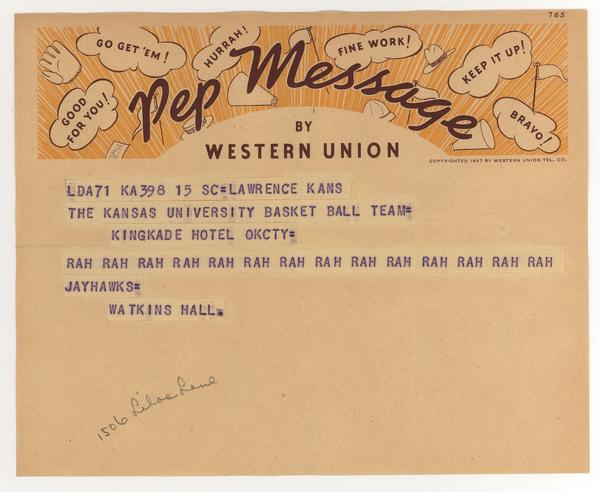 765
GO GET 'EM!
HURRAH!
FINE WORK!
KEEP IT UP!
GOOD FOR YOU!
BRAVO!
Pep Message
BY
WESTERN UNION
COPYRIGHTED 1937 BY WESTERN UNION TEL. CO.
LDA71 KA398 15 SC=LAWRENCE KANS
THE KANSAS UNIVERSITY BASKET BALL TEAM=
KINGKADE HOTEL OKCTY=
RAH RAH RAH RAH RAH RAH RAH RAH RAH RAH RAH RAH RAH RAH
JAYHAWKS=
WATKINS HALL.
1506 Lilac Lane